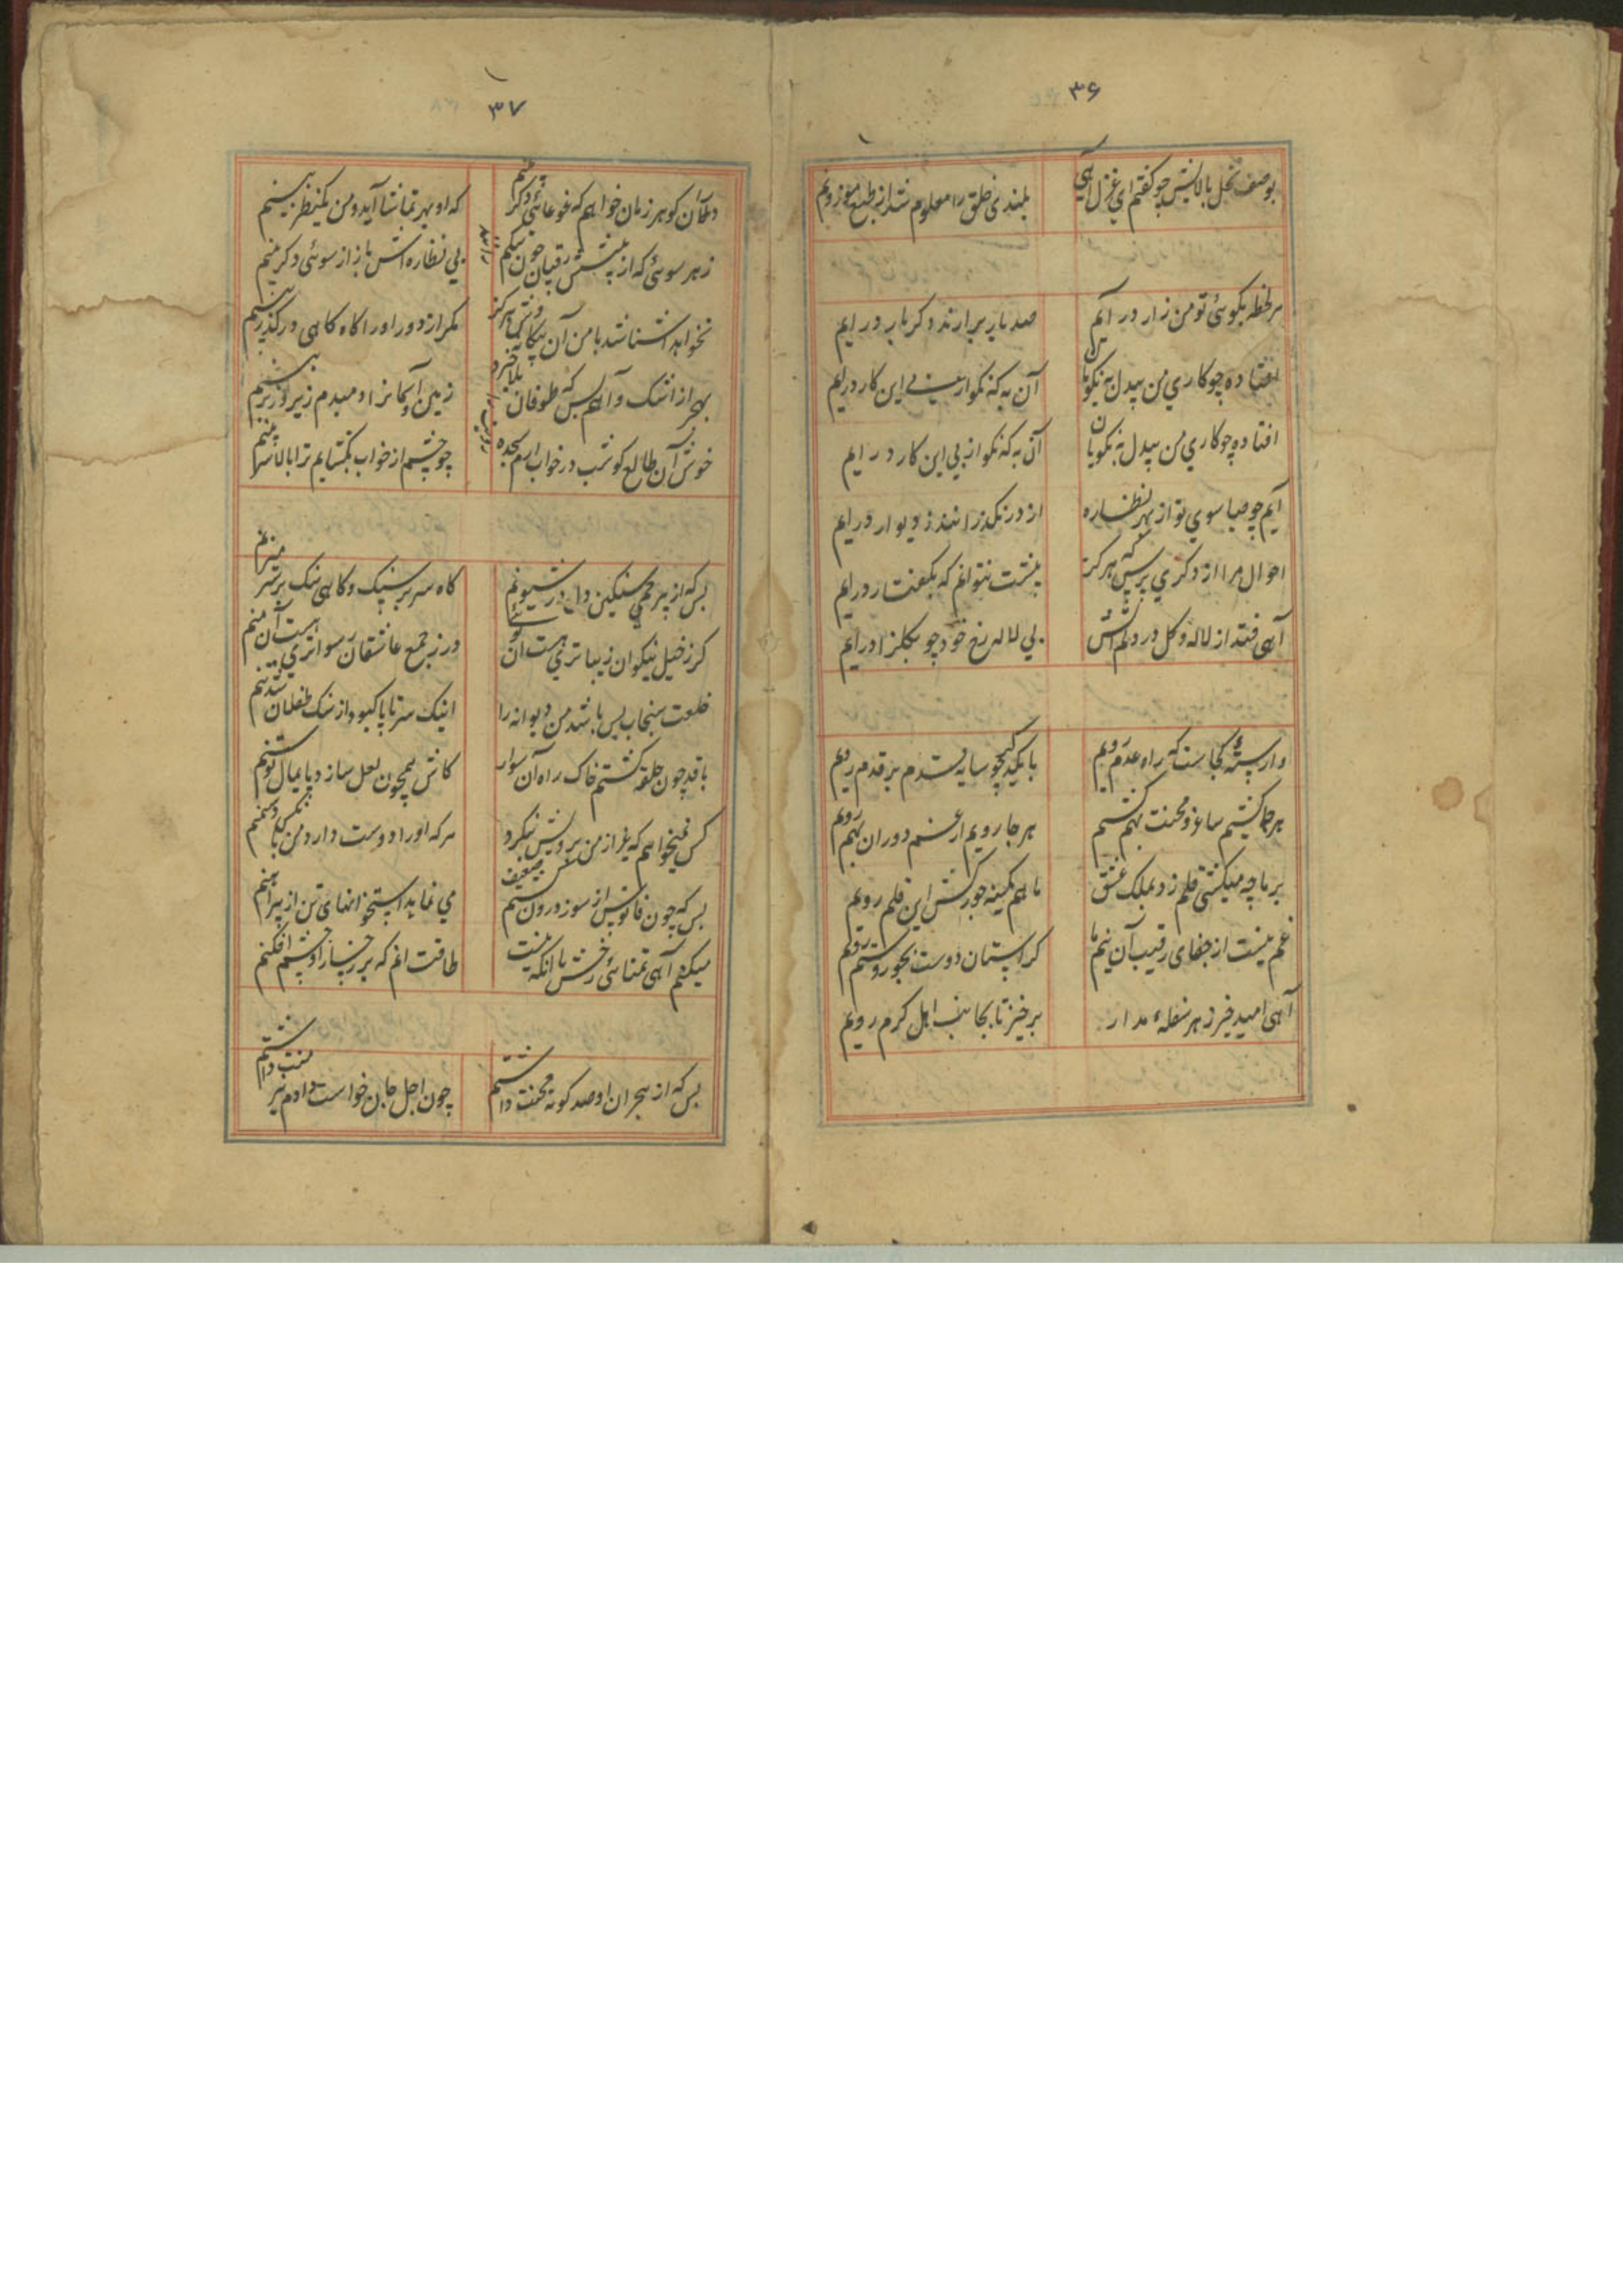 ۳۶
بوصف نخل بالایش چو کفتم این غزل آهی
بلندی خلق را معلوم شد از طبع موزونم
هر لحظه بکوی تو من زار در آیم
صد بار برارند و کر بار در ایم
افتاده چو کاری من بیدل به نکویان
آن به که نکو از پی این کار در ایم
افتاده چو کاری من بیدل به نکویان
آن به که نکو از پی این کار در ایم
آیم چو صبا سوی تو از بهر نظاره
از در نکذرانند ز دیوار در ایم
احوال مرا از دکری پرس که هرکز
پیشت نتوانم که بکفتار در ایم
آهی فتد از لاله و کل در دلم آتش
بی لاله رخ خود چو بکلزار در ایم
وارسته کجاست که راه عدم رویم
با یکدکر چو سایه قدم بر قدم رویم
هر جا کشیم ساغر و محنت بهم کشیم
هر جا رویم از غم دوران بهم رویم
بر ما چه میکشی قلم رد بملک عشق
ما هم کمینه جورکش این قلم رویم
غم نیست از جفای رقیب آن نیم ما
کز آستان دوست بجور و ستم رویم
آهی امید خیر ز هر سفلهء مدار
برخیز تا بجانب اهل کرم رویم
۳۷
دلم آن کو هر زمان خواهم که غوغائی دکر بینم
که او بهر تماشا آید و من یکنظر بینم
ز هر سوئی که از پیشش رقیبان چون بیکم رانند
پی نظاره اش باز از سوئی دکر بینم
نخواهد آشنا شد با من آن بیکانه وش هرکز
مکر از دور او را کاه کاهی در کذر بینم
بهجر از اشک و آهم بس که طوفان بلا خیزد
زمین و آسمانرا دمبدم زیر و زبر بینم
خوش آن طالع که شب در خواب ارم سجده
چو چشم از خواب بکشایم ترا بالای سر بینم
بس که از بیرحمی سنکین دلی در شیونم
کاه سر بر سنک و کاهی سنک بر سر میزنم
کر ز خیل نیکوان زیباتری هست آن توئی
ور ز جمع عاشقان رسواتری هست آن منم
خلعت سنجاب بس باشد من دیوانه را
اینک سر تا پا کبود از سنک طفلان شد تنم
با قد چون حلقه کشتم خاک راه آن سوار
کاش همچون نعل سازد پایمال توسنم
کس نمیخواهم که غیر از من برویش بنکرد
هر که او را دوست دارد من بانکس دشمنم
بس که چون فانوس از سوز درون شد تن ضعیف
می نماید استخوانهای تن از پیراهنم
میکنم آهی تمنای رخش با انکه نیست
طاقت انم که بر رخسار او چشم افکنم
بس که از هجران او صد کونه محنت داشتم
چون اجل جان خواست دادم نیز منت داشتم